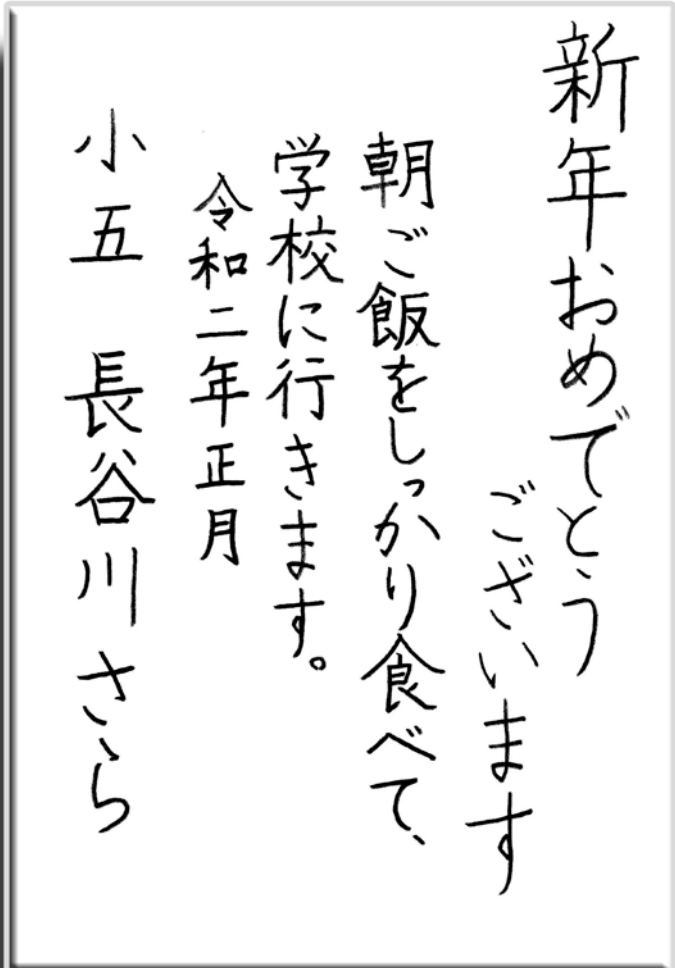 新年おめでとう
ございます
朝ご飯をしっかり食べて、
学校に行きます。
令和二年正月
小五 長谷川さら